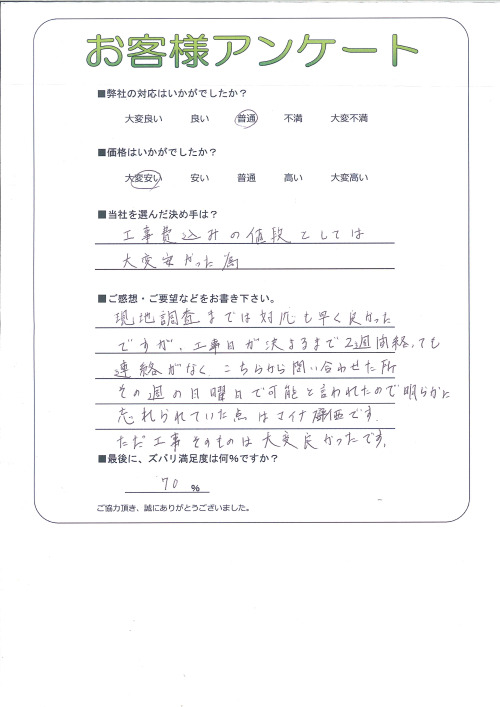 お客様アンケート
■弊社の対応はいかがでしたか？
大変良い 良い 普通 不満 大変不満
■価格はいかがでしたか？
大変安い 安い 普通 高い 大変高い
■当社を選んだ決め手は？
工事費込みの値段としては
大変安かった為
■ご感想・ご要望などをお書き下さい。
現地調査までは対応も早く良かった
ですが、工事日が決まるまで2週間経っても
連絡がなく、こちらから問い合わせた所
その週の日曜日で可能と言われたので明らかに
忘れられていた点はマイナ評価です。
ただ工事そのものは大変良かったです。
■最後に、ズバリ満足度は何%ですか？
70 %
ご協力頂き、誠にありがとうございました。